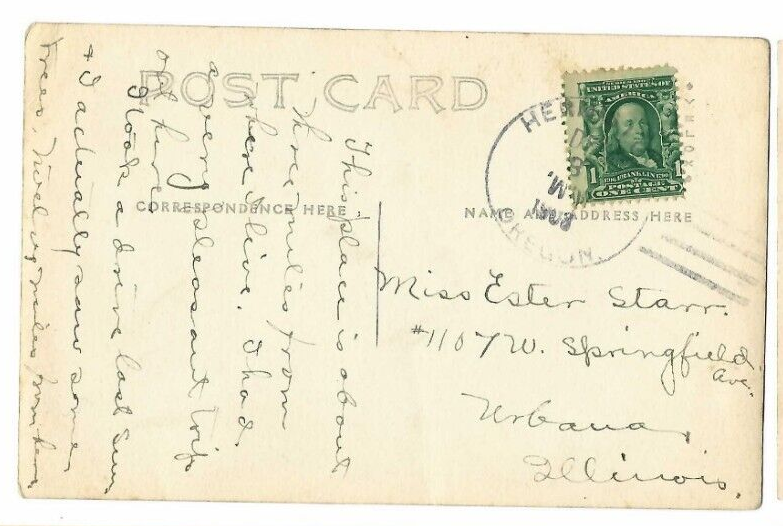 POST CARD
CORRESPONDENCE HERE
NAME AND ADDRESS HERE
SERIES 1902
UNITED STATES OF
AMERICA
1 1
FRANKLIN
POSTAGE
ONE CENT
HERM
D
8
M.
1908
OREGON.
This place is about
three miles from
where I live. I had
a very pleasant trip
out here
I took a drive last Sun.
& I actually saw some
trees, twelve miles from here.
Miss Ester Starr.
#1107 W. Springfield
Ave.
Urbana,
Illinois.